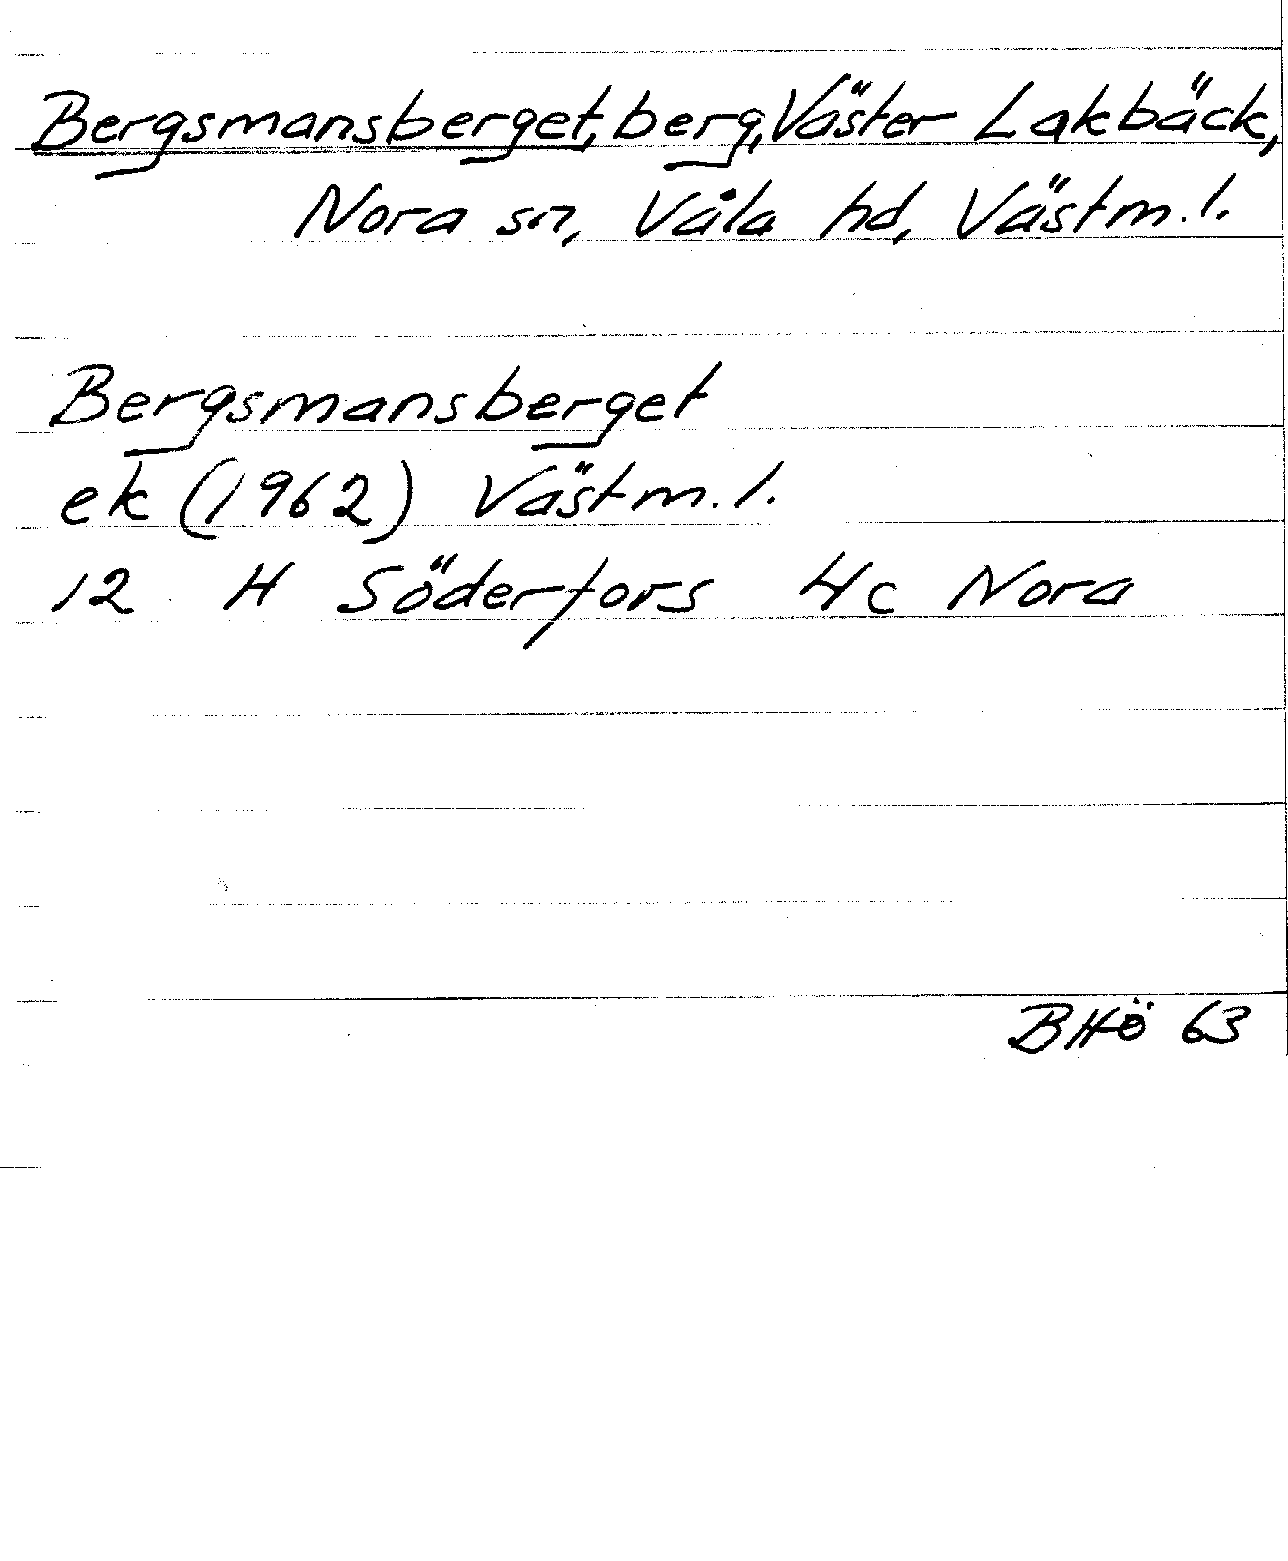 Bergsmansberget, berg, Väster Lakbäck,
Nora sn, Våla hd, Västm. l.
Bergsmansberget
ek (1962) Västm. l.
12 H Söderfors 4c Nora
BHö 63